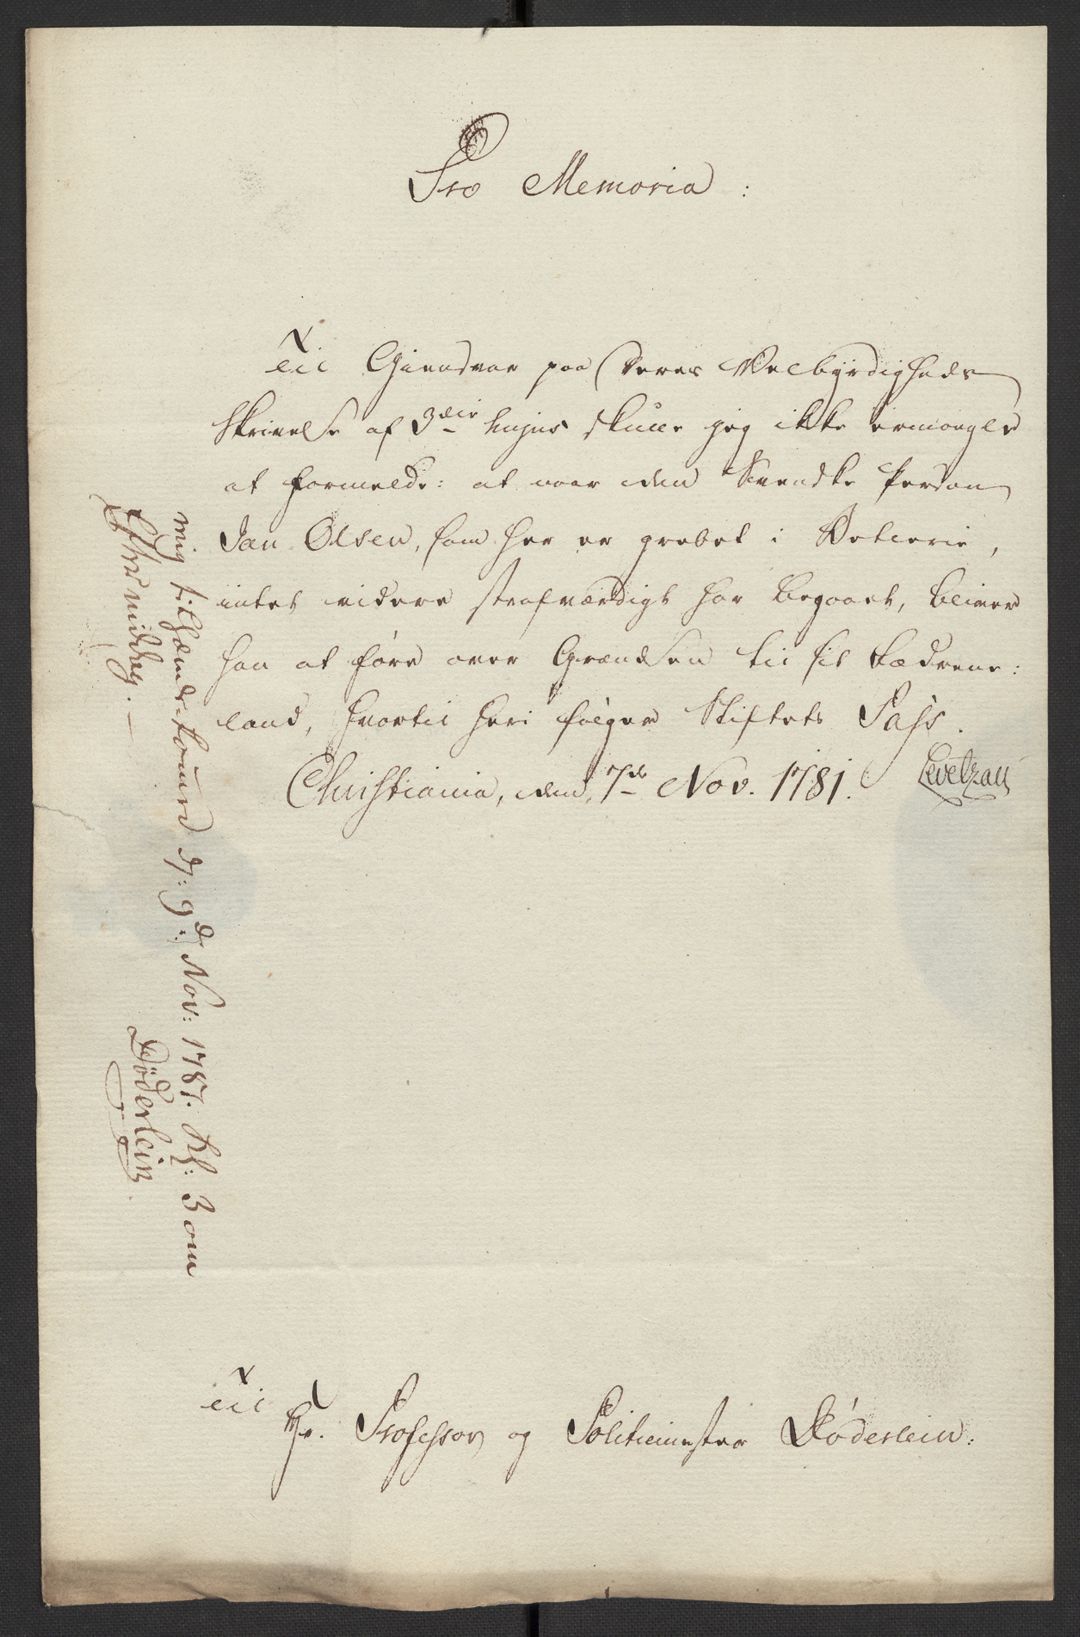 Pro Memoria:
Til Giensvar paa Deres Velbyrdigheds
Skrivelse af 3die hujus skulle jeg ikke ermangle
at formelde: at naar den Svendske Person
Jan Olsen, som her er grebet i Betlerie,
intet videre strafværdigt har begaaet, bliver
han at føre over Grændsen til sit Fædrene:
land, hvortil heri følger Stiftets Pass.
Christiania, den 7de Nov. 1781.
Levetzau
mig tilhænde kommed d: 9d. Nov: 1781. Kl: 3 om
Eftermiddag.
Döderlein.
Til
Hr. Professor og Politiemester Døderlein.